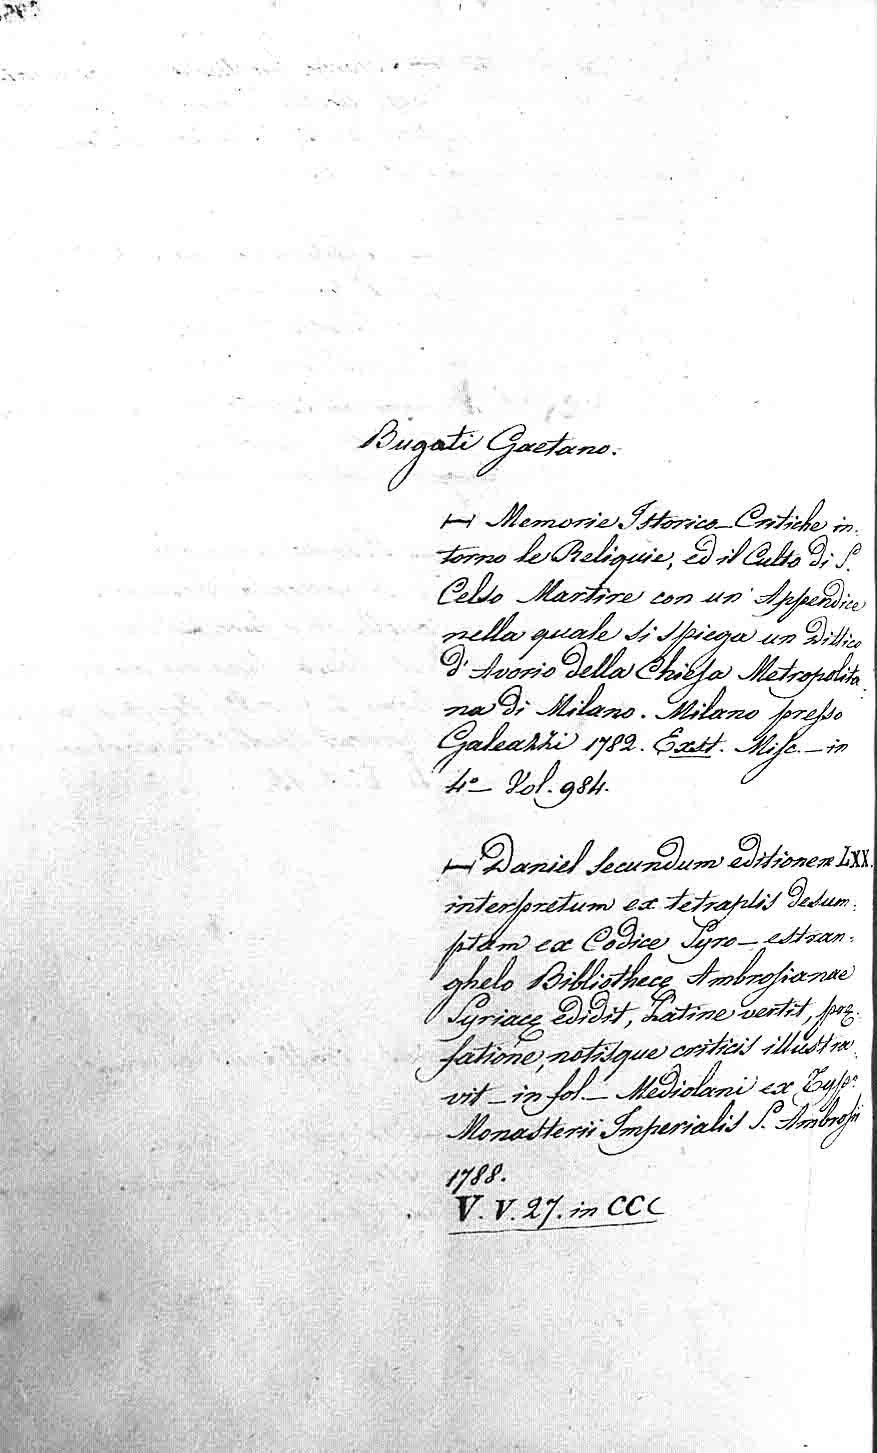 Bugati Gaetano.
— Memorie Istorico-Critiche in-
torno le Reliquie, ed il Culto di S.
Celso Martire con un' Appendice
nella quale si spiega un Dittico
d'Avorio della Chiesa Metropolita-
na di Milano. Milano presso
Galeazzi 1782. Exst. Misc. — in
4° — Vol. 984.
— Daniel secundum editionem LXX.
interpretum ex tetraplis desum-
ptam ex Codice Syro-estran-
ghelo Bibliothecę Ambrosianae
Syriacę edidit, Latine vertit, pre-
fatione, notisque criticis illustra-
vit — in fol. — Mediolani ex Typ.°
Monasterii Imperialis S. Ambrosii
1788.
V. V. 27. in CCC